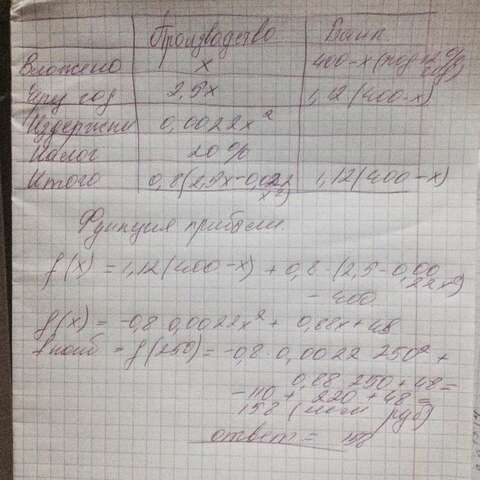 Производство Банк
Вложено x 400-x (под 12% год)
Чрез год 2,5x 1,12(400-x)
Издержки 0,0022x²
Налог 20%
Итого 0,8(2,5x-0,0022x²) 1,12(400-x)
Функция прибыли.
f(x) = 1,12(400-x) + 0,8·(2,5-0,0022x²)
- 400
f(x) = -0,8·0,0022x² + 0,88x + 48
f наиб = f(250) = -0,8·0,0022·250² +
0,88·250+48=
-110 + 220 + 48 =
158 (млн руб)
ответ = 158